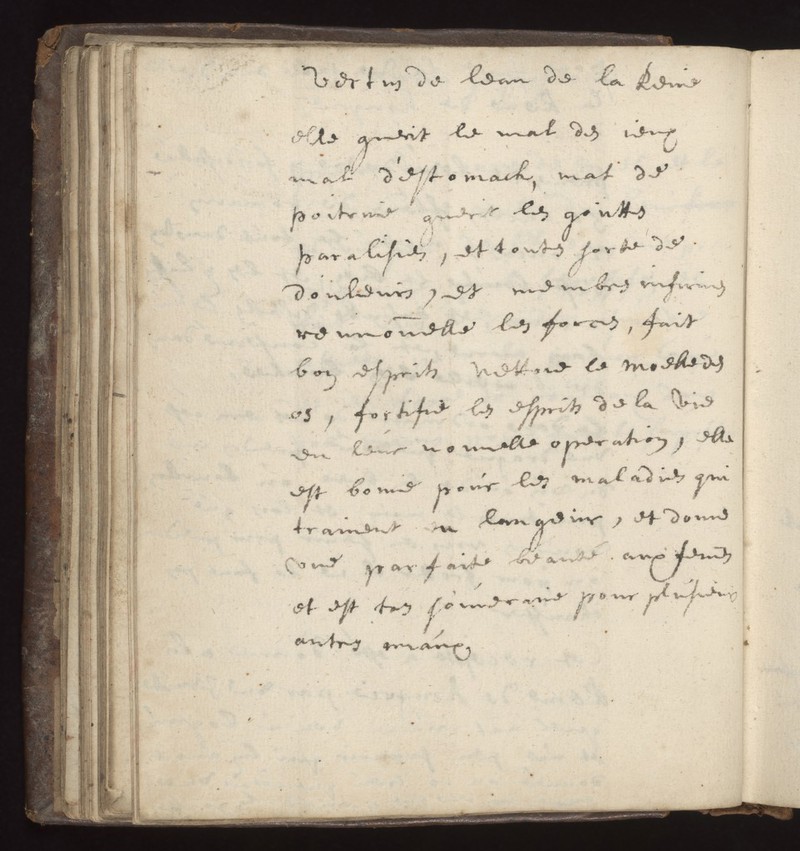 Vertus de leau de la Reine
elle guerit le mal des ieux
mal d'estomach, mal de
poitrine guerit les gouttes
paralisies, et toutes sorte de
douleurs, et membres infirmes
renuouvelle les forces, fait
bon esprits nettoie le moelle des
os, fortifie les esprits de la Vie
en leur nouvelle operation, elle
est bonne pour les maladies qui
trainent en langeur, et donne
vne parfaite beauté aux femes
et est tres souveraine pour plusieurs
autres maux,